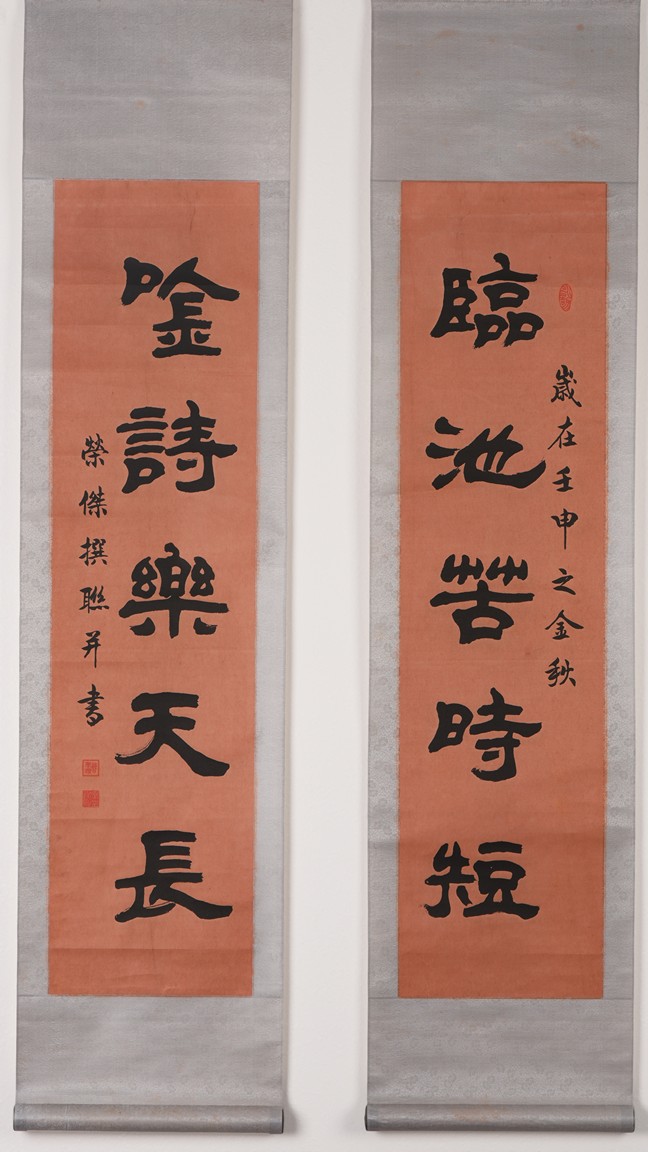 歲在壬申之金秋
臨池苦時短
唫詩樂天長
榮傑撰聯并書